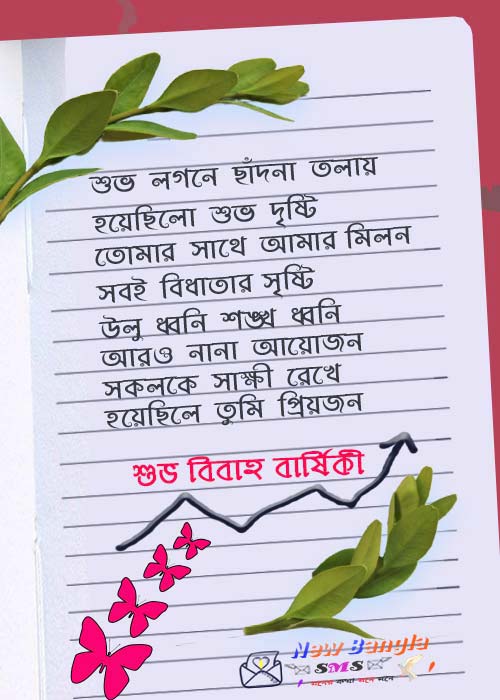 শুভ লগনে ছাঁদনা তলায়
হয়েছিলো শুভ দৃষ্টি
তোমার সাথে আমার মিলন
সবই বিধাতার সৃষ্টি
উলু ধ্বনি শঙ্খ ধ্বনি
আরও নানা আয়োজন
সকলকে সাক্ষী রেখে
হয়েছিলে তুমি প্রিয়জন
শুভ বিবাহ বার্ষিকী
New Bangla
SMS
মনের কথা মনে মনে